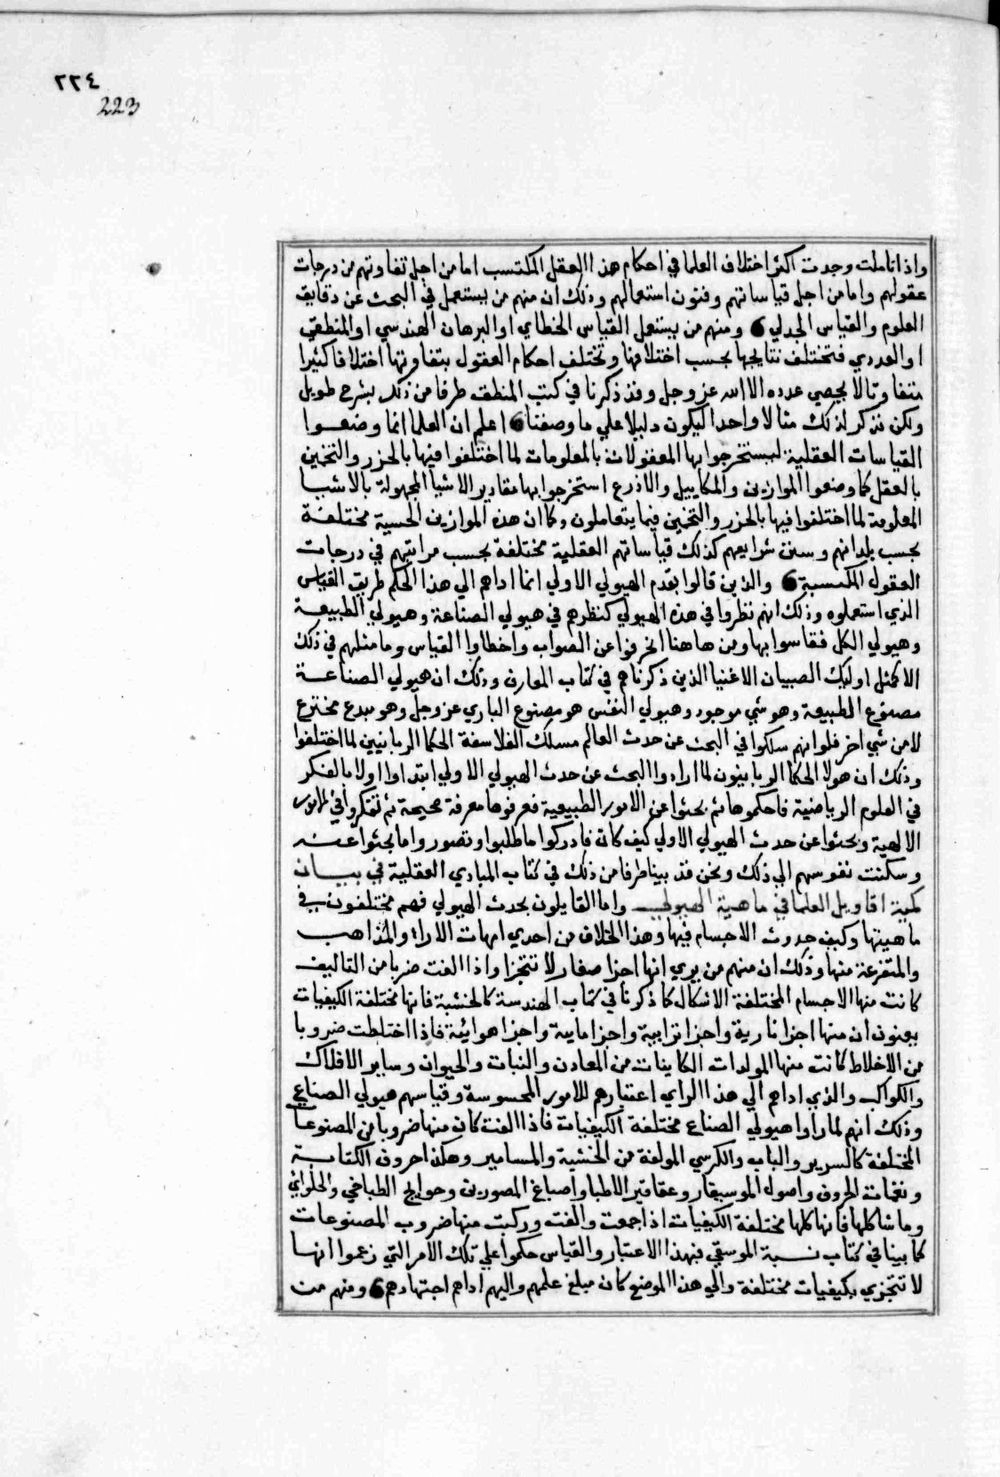 ٢٢٤
223
واذا تاملت وجدت اكثر اختلاف العلما في احكام هذا العقل المكتسب اما من اجل تفاوتهم من درجات
عقولهم واما من اجل قياساتهم وفنون استعمالهم وذلك ان منهم من يستعمل في البحث عن دقايق
العلوم والقياس الجدلي 6 ومنهم من يستعمل القياس الخطابي او البرهان الهندسي او المنطقي
او العددي فتختلف نتايجها بحسب اختلافها وتختلف احكام العقول بتفاوتها اختلافا كثيرا
متفاوتا لا يحصي عدده الا الله عز وجل وقد ذكرنا في كتب المنطق طرفا من ذلك بشرح طويل
ولكن نذكر لذلك مثالا واحدا ليكون دليلا علي ما وصفنا 6 اعلم ان العلما انما وضعوا
القياسات العقلية ليستخرجوا بها المعقولات بالمعلومات لما اختلفوا فيها بالحزر والتخمين
بالعقل كما وضعوا الموازين والمكاييل والاذرع استخرجوا بها مقادير الاشيا المجهولة بالاشيا
المعلومة لما اختلفوا فيها بالحزر والتخمين فيما يتعاملون وكما ان هذه الموازين الحسية مختلفة
بحسب بلدانهم وسنن شرايعهم كذلك قياساتهم العقلية مختلفة بحسب مراتبهم في درجات
العقول المكتسبة 6 والذين قالوا بقدم الهيولي الاولي انما اداهم الي هذا الحكم طريق القياس
الذي استعملوه وذلك انهم نظروا في هذه الهيولي كنظرهم في هيولي الصناعة وهيولي الطبيعة
وهيولي الكل فقاسوا بها ومن هاهنا انحرفوا عن الصواب واخطاوا القياس وما مثلهم في ذلك
الا كمثل اوليك الصبيان الاغنيا الذين ذكرناهم في كتاب المعارف وذلك ان هيولي الصناعة
مصنوع الطبيعة وهو شي موجود وهيولي النفس هو مصنوع الباري عز وجل وهو مبدع مخترع
لا من شي اخر فلو انهم سلكوا في البحث عن حدث العالم مسلك الفلاسفة الحكما الربانيين لما اختلفوا
وذلك ان هولا الحكما الربانيون لما ارادوا البحث عن حدث الهيولي الاولي ابتداوا اولا بالفكر
في العلوم الرياضية فاحكموها ثم بحثوا عن الامور الطبيعية فعرفوها معرفة صحيحة ثم تفكروا في الامور
الالهية وبحثوا عن حدث الهيولي الاولي كيف كان فادركوا ما طلبوا وتصوروا ما بحثوا عنه
وسكنت نفوسهم الي ذلك ونحن قد بينا طرفا من ذلك في كتاب المبادي العقلية في بيان
كمية اقاويل العلما في ماهية الهيولي واما القايلون بحدث الهيولي فهم مختلفون في
ماهيتها وكيف حدوث الاجسام فيها وهذا الخلاف من احدي امهات الارا والمذاهب
والمتفرعة منها وذلك ان منهم من يري انها اجزا صغار لا تتجزا واذا الفت ضربا من التاليف
كانت منها الاجسام المختلفة الاشكال كما ذكرنا في كتاب الهندسة كالخشبة فانها مختلفة الكيفيات
يعنون ان منها اجزا نارية واجزا ترابية واجزا مايية واجزا هوائية فاذا اختلطت ضروبا
من الاخلاط كانت منها المولدات الكاينات من المعادن والنبات والحيوان وساير الافلاك
والكواكب والذي اداهم الي هذا الراي اعتبارهم للامور المحسوسة وقياسهم هيولي الصنايع
وذلك انهم لما راوا هيولي الصنايع مختلفة الكيفيات فاذا الفت كان منها ضروبا من المصنوعات
المختلفة كالسرير والباب والكرسي المولفة من الخشبة والمسامير وهكذا حروف الكتابة
ونغمات الحروف واصول الموسيقار وعقاقير الاطبا واصباغ المصورين وحوايج الطباخي والحلواني
وما شاكلها فانها كلها مختلفة الكيفيات اذا جمعت والفت وركبت منها ضروب المصنوعات
كما بينا في كتاب نسبة الموسيقي فبهذا الاعتبار والقياس حكموا علي تلك الامر التي زعموا انها
لا تتجزي بكيفيات مختلفة والي هذا الموضع كان مبلغ علمهم واليهم اداهم اجتهادهم 6 ومنهم من